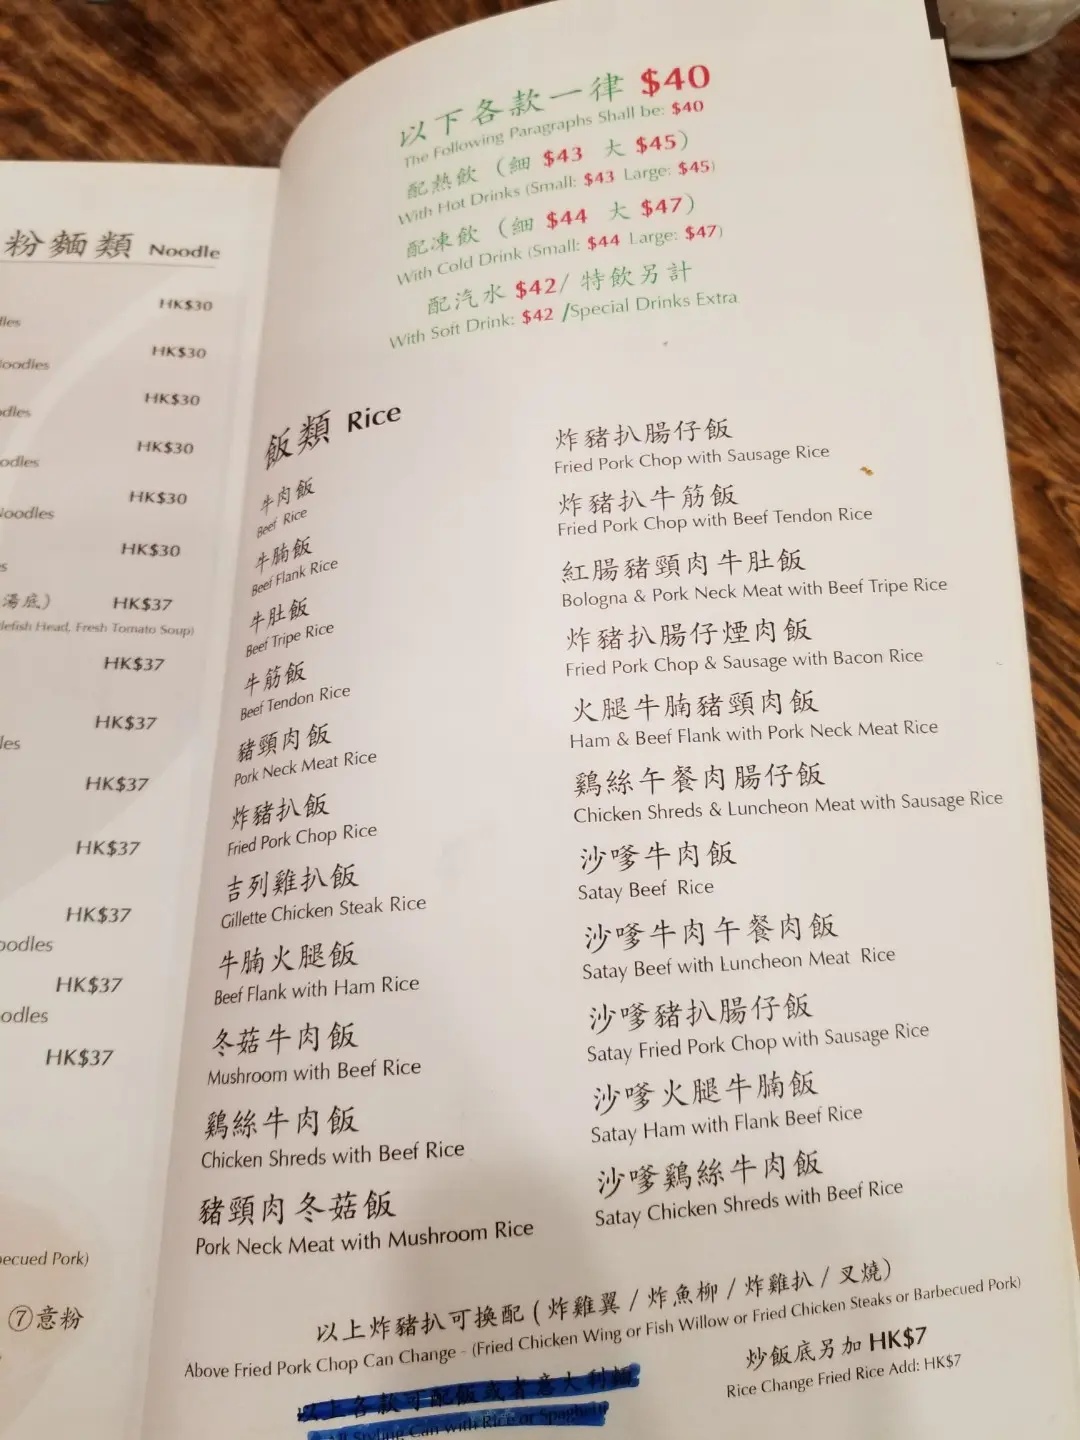 粉麵類 Noodle
HK$30
HK$30
oodles
HK$30
HK$30
HK$30
HK$30
湯底） HK$37
Head, Fresh Tomato Soup)
HK$37
HK$37
HK$37
HK$37
HK$37
HK$37
HK$37
becued Pork)
⑦意粉
以下各款一律 $40
The Following Paragraphs Shall be: $40
配熱飲（細 $43 大 $45）
With Hot Drinks (Small: $43 Large: $45)
配凍飲（細 $44 大 $47）
With Cold Drink (Small: $44 Large: $47)
配汽水 $42/ 特飲另計
With Soft Drink: $42 /Special Drinks Extra
飯類 Rice
牛肉飯
Beef Rice
牛腩飯
Beef Flank Rice
牛肚飯
Beef Tripe Rice
牛筋飯
Beef Tendon Rice
豬頸肉飯
Pork Neck Meat Rice
炸豬扒飯
Fried Pork Chop Rice
吉列雞扒飯
Gillette Chicken Steak Rice
牛腩火腿飯
Beef Flank with Ham Rice
冬菇牛肉飯
Mushroom with Beef Rice
鷄絲牛肉飯
Chicken Shreds with Beef Rice
豬頸肉冬菇飯
Pork Neck Meat with Mushroom Rice
炸豬扒腸仔飯
Fried Pork Chop with Sausage Rice
炸豬扒牛筋飯
Fried Pork Chop with Beef Tendon Rice
紅腸豬頸肉牛肚飯
Bologna & Pork Neck Meat with Beef Tripe Rice
炸豬扒腸仔煙肉飯
Fried Pork Chop & Sausage with Bacon Rice
火腿牛腩豬頸肉飯
Ham & Beef Flank with Pork Neck Meat Rice
鷄絲午餐肉腸仔飯
Chicken Shreds & Luncheon Meat with Sausage Rice
沙嗲牛肉飯
Satay Beef Rice
沙嗲牛肉午餐肉飯
Satay Beef with Luncheon Meat Rice
沙嗲豬扒腸仔飯
Satay Fried Pork Chop with Sausage Rice
沙嗲火腿牛腩飯
Satay Ham with Flank Beef Rice
沙嗲鷄絲牛肉飯
Satay Chicken Shreds with Beef Rice
以上炸豬扒可換配 ( 炸雞翼 / 炸魚柳 / 炸雞扒 / 叉燒）
Above Fried Pork Chop Can Change - (Fried Chicken Wing or Fish Willow or Fried Chicken Steaks or Barbecued Pork)
炒飯底另加 HK$7
Rice Change Fried Rice Add: HK$7
以上各款可配飯或者意大利麵
All Styling Can with Rice or Spaghetti